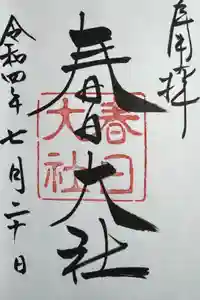 奉拝
春日大社
春日大社
令和四年七月二十日